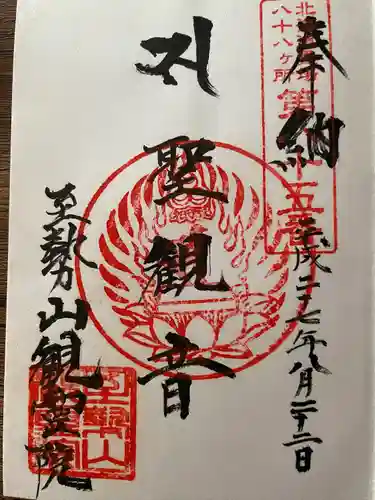 奉納
平成二十七年八月二十二日
聖観音
至勢山観霊院
北海道
八十八ヶ所
第
十五番
至勢山